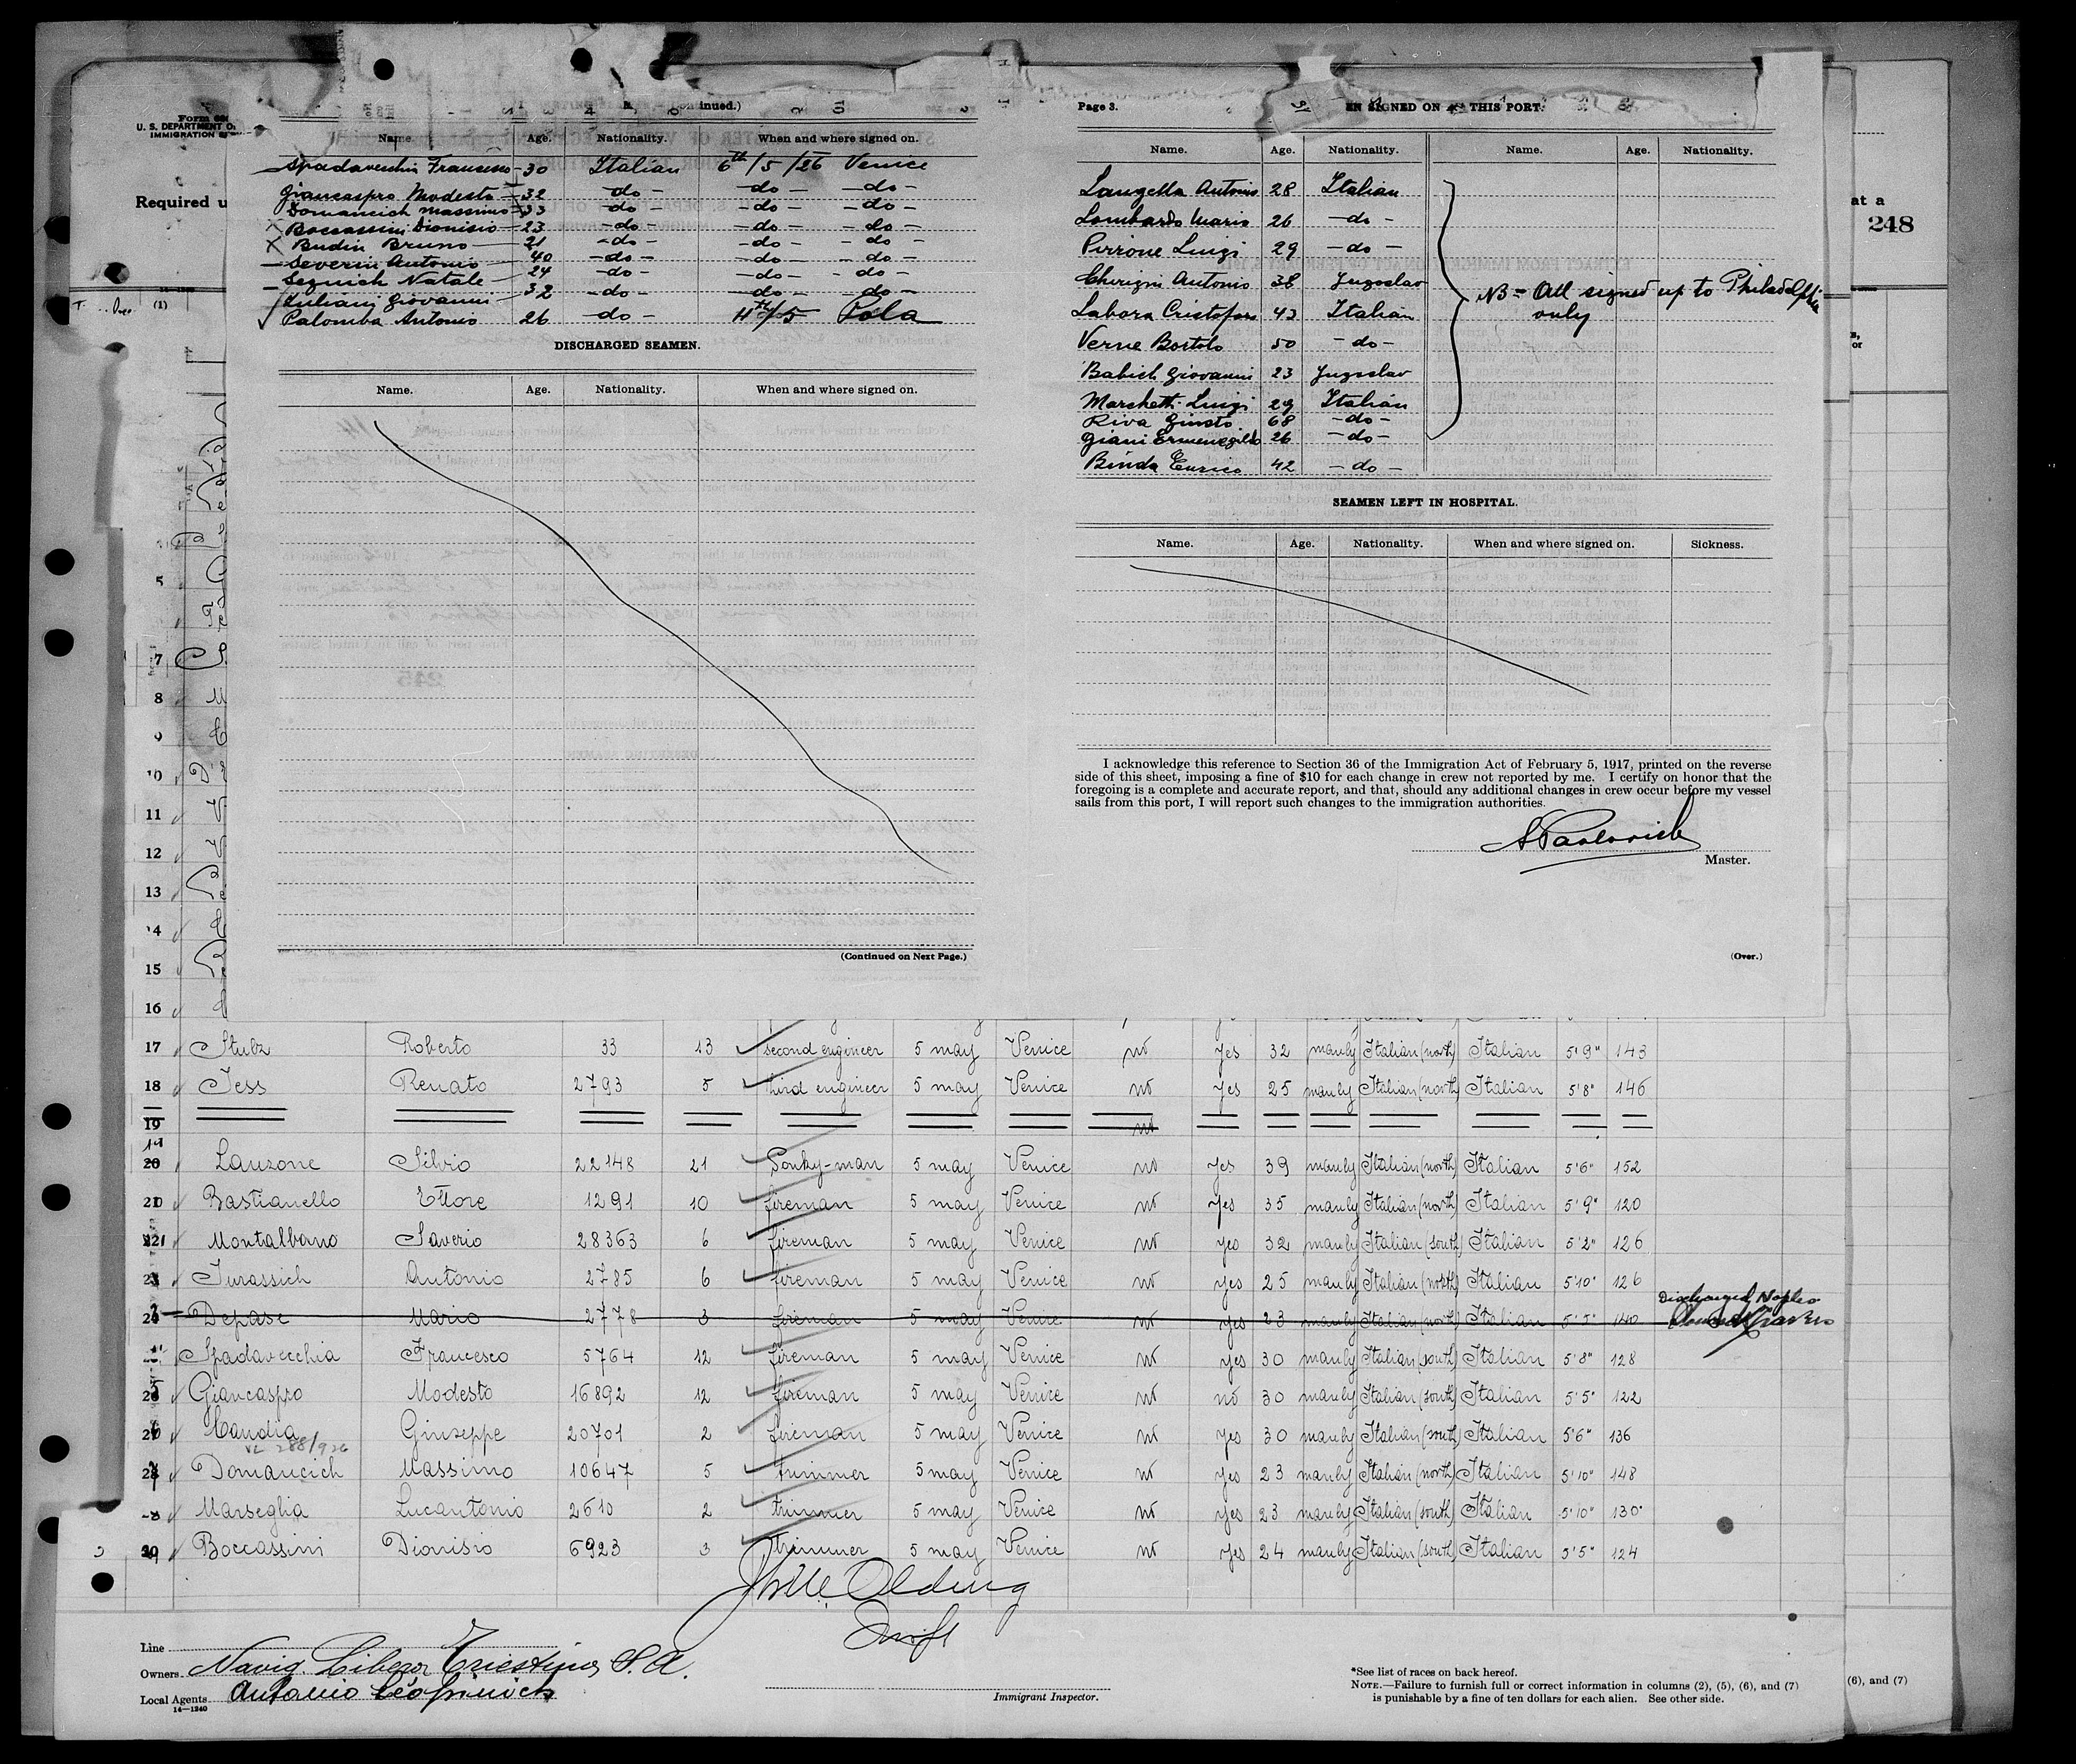 U. S. DEPARTMENT O
IMMIGRATION
Required u
(1)
at a
248
ontinued.)
Name. Age. Nationality. When and where signed on.
Spadavecchia Francesco 30 Italian 6th/5/26 Venice
Giancaspro Modesto 32 -do- -do- -do-
Domancich Massimo 33 -do- -do- -do-
X Boccassini Dionisio 23 -do- -do- -do-
X Budin Bruno 21 -do- -do- -do-
Severin Antonio 40 -do- -do- -do-
Segnich Natale 24 -do- -do- -do-
Iuliani Giovanni 32 -do- -do- -do-
Palomba Antonio 26 -do- 11th/5 Pola
DISCHARGED SEAMEN.
Name. Age. Nationality. When and where signed on.
(Continued on Next Page.)
Page 3.
EN SIGNED ON THIS PORT.
Name. Age. Nationality. Name. Age. Nationality.
Langella Antonio 28 Italian
Lombardo Mario 26 -do-
Pirrone Luigi 29 -do-
Antonio 38 Jugoslav
NB = All signed up to Philadelphia
only
Labora Cristoforo 43 Italian
Verne Bortolo 50 -do-
Babich Giovanni 23 Jugoslav
Marchetti Luigi 29 Italian
Riva Giusto 68 -do-
Giani Ermenegildo 26 -do-
Binda Enrico 42 -do-
SEAMEN LEFT IN HOSPITAL.
Name. Age. Nationality. When and where signed on. Sickness.
I acknowledge this reference to Section 36 of the Immigration Act of February 5, 1917, printed on the reverse
side of this sheet, imposing a fine of $10 for each change in crew not reported by me. I certify on honor that the
foregoing is a complete and accurate report, and that, should any additional changes in crew occur before my vessel
sails from this port, I will report such changes to the immigration authorities.
Master.
(Over.)
5
7
8
9
10
11
12
13
14
15
16
17 Stulz Roberto 33 13 second engineer 5 may Venice no yes 32 manly Italian (north) Italian 5'9" 143
18 Jess Renato 2793 5 third engineer 5 may Venice no yes 25 manly Italian (north) Italian 5'8" 146
19 no
20 Lauzone Silvio 22148 21 Donky-man 5 may Venice no yes 39 manly Italian (north) Italian 5'6" 152
Bastianello Ettore 1291 10 fireman 5 may Venice no yes 35 manly Italian (north) Italian 5'9" 120
Montalbano Saverio 28363 6 fireman 5 may Venice no yes 32 manly Italian (south) Italian 5'2" 126
Jurassich Antonio 2785 6 fireman 5 may Venice no yes 25 manly Italian (north) Italian 5'10" 126
Discharged Naples
Depase Mario 2778 3 fireman 5 may Venice no yes 23 manly Italian (north) Italian 5'5" 140
Spadavecchia Francesco 5764 12 fireman 5 may Venice no yes 30 manly Italian (south) Italian 5'8" 128
Giancaspro Modesto 16892 12 fireman 5 may Venice no no 30 manly Italian (south) Italian 5'5" 122
Candia Giuseppe 20701 2 fireman 5 may Venice no yes 30 manly Italian (south) Italian 5'6" 136
VL 288/926
Domancich Massimo 10647 5 trimmer 5 may Venice no yes 23 manly Italian (north) Italian 5'10" 148
Marseglia Lucantonio 2610 2 trimmer 5 may Venice no yes 23 manly Italian (south) Italian 5'10" 130
Boccassini Dionisio 6923 3 trimmer 5 may Venice no yes 24 manly Italian (south) Italian 5'5" 124
Line
Owners Navig. Libera Triestina S.A.
Local Agents Antonio Cosulich
14—1240
Immigrant Inspector.
*See list of races on back hereof.
NOTE.—Failure to furnish full or correct information in columns (2), (5), (6), and (7)
is punishable by a fine of ten dollars for each alien. See other side.
(6), and (7)